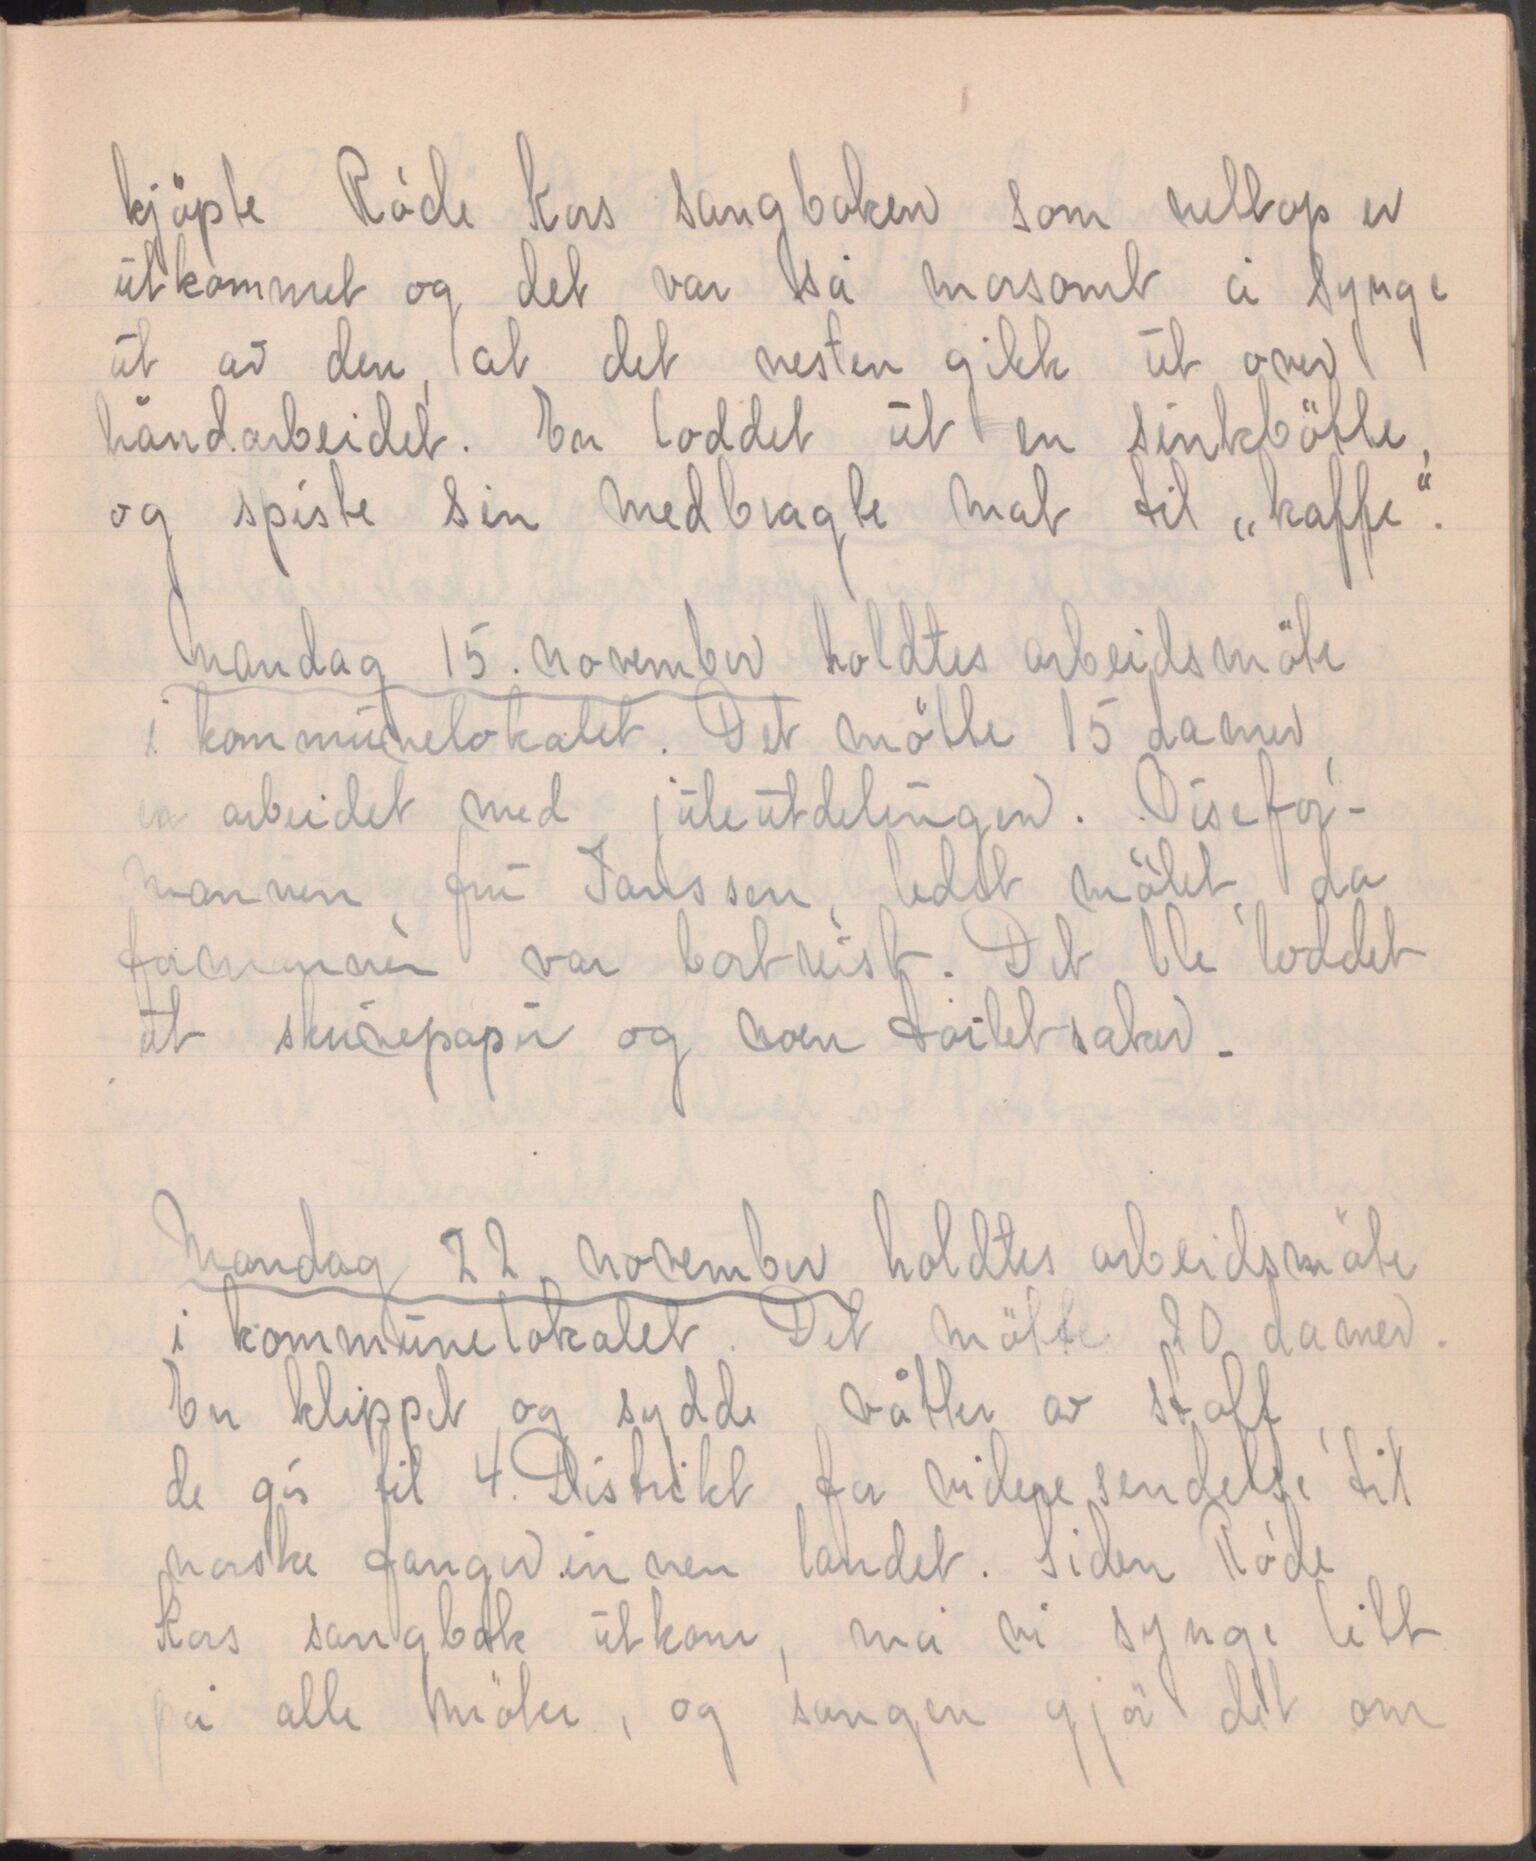 kjöpte Röde Kors sangboken som nettop er
utkommet og det var så morsomt å synge
ut av den, at det nesten gikk ut over
håndarbeidet. En loddet ut en sinkbötte,
og spiste sin medbragte mat til „kaffe".
Mandag 15. november holdtes arbeidsmöte
i kommunelokalet. Det mötte 15 damer,
en arbeidet med juleutdelingen. Visefor-
mannen fru Janssen, ledet mötet, da
formannen var bortreist. Det ble loddet
ut skurepapir og noen toilettsaker.
Mandag 22. november holdtes arbeidsmöte
i kommunelokalet. Det mötte 20 damer.
En klippet og sydde våtter av stoff,
de gis til 4. Distrikt for videresendelse til
norske fanger innen landet. Siden Röde
Kors sangbok utkom, må vi synge litt
på alle möter, og sangen gjör det om